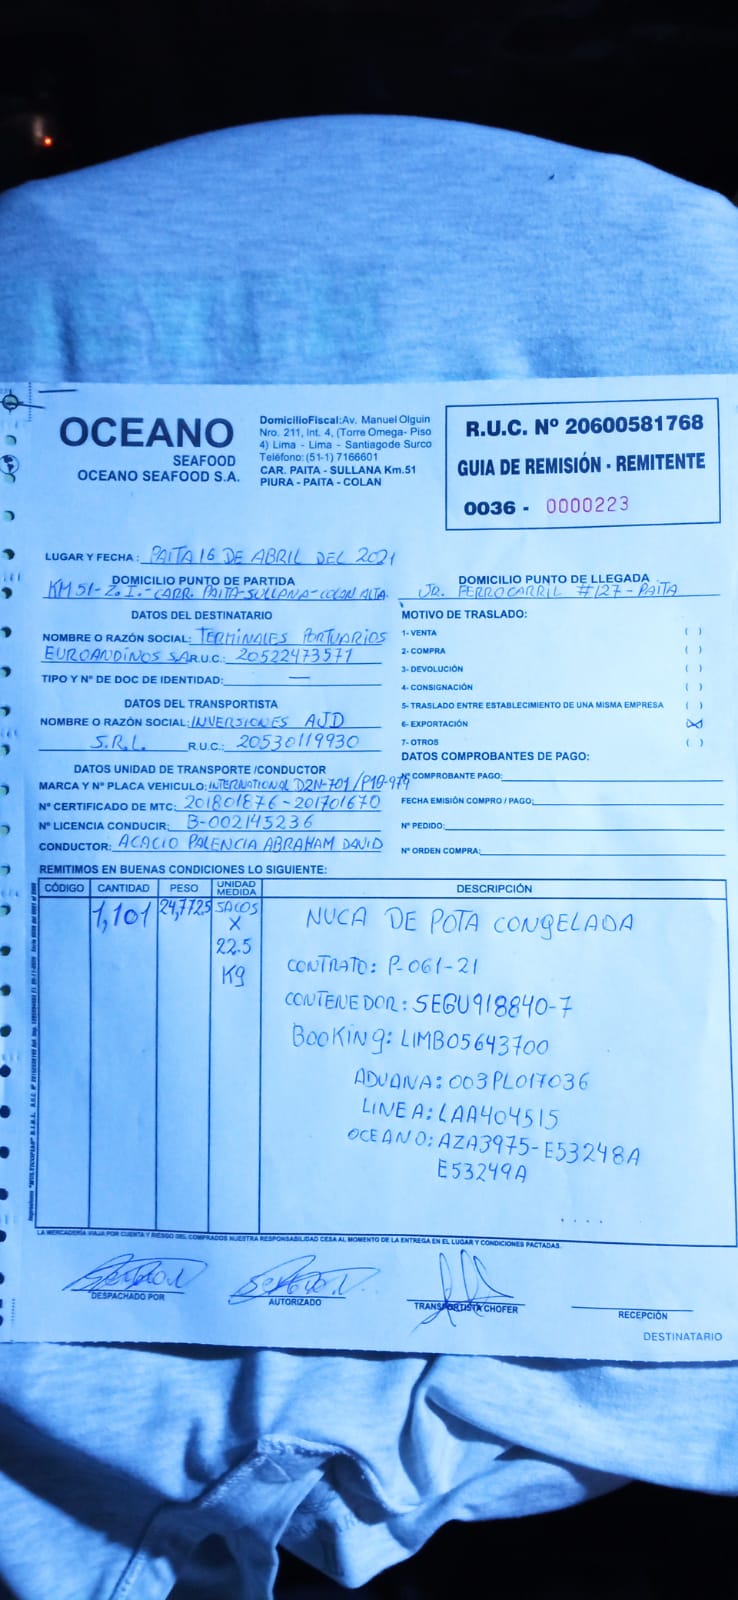 OCEANO
SEAFOOD
OCEANO SEAFOOD S.A.
DomicilioFiscal:Av. Manuel Olguin
Nro. 211, Int. 4, (Torre Omega- Piso
4) Lima - Lima - Santiagode Surco
Teléfono: (51-1) 7166601
CAR. PAITA - SULLANA Km.51
PIURA - PAITA - COLAN
R.U.C. Nº 20600581768
GUIA DE REMISIÓN - REMITENTE
0036 - 0000223
LUGAR Y FECHA: PAITA 16 DE ABRIL DEL 2021
DOMICILIO PUNTO DE PARTIDA
KM 51- Z.I.- CARR. PAITA-SULLANA-COLAN ALTA.
DOMICILIO PUNTO DE LLEGADA
JR. FERROCARRIL #127-PAITA
DATOS DEL DESTINATARIO
NOMBRE O RAZÓN SOCIAL: TERMINALES PORTUARIOS
EUROANDINOS SA R.U.C.: 20522473571
TIPO Y Nº DE DOC DE IDENTIDAD: —
DATOS DEL TRANSPORTISTA
NOMBRE O RAZÓN SOCIAL: INVERSIONES AJD
S.R.L. R.U.C: 20530119930
DATOS UNIDAD DE TRANSPORTE /CONDUCTOR
MARCA Y Nº PLACA VEHICULO: INTERNATIONAL D2N-701/P1G-979
Nº CERTIFICADO DE MTC: 201801876-201701670
Nº LICENCIA CONDUCIR: B-002145236
CONDUCTOR: ACACIO PALENCIA ABRAHAM DAVID
MOTIVO DE TRASLADO:
1- VENTA ( )
2- COMPRA ( )
3- DEVOLUCIÓN ( )
4- CONSIGNACIÓN ( )
5- TRASLADO ENTRE ESTABLECIMIENTO DE UNA MISMA EMPRESA ( )
6- EXPORTACIÓN (X)
7- OTROS ( )
DATOS COMPROBANTES DE PAGO:
Nº COMPROBANTE PAGO:
FECHA EMISIÓN COMPRO / PAGO:
Nº PEDIDO:
Nº ORDEN COMPRA:
REMITIMOS EN BUENAS CONDICIONES LO SIGUIENTE:
CÓDIGO CANTIDAD PESO UNIDAD MEDIDA DESCRIPCIÓN
1,101 24,772.5 SACOS NUCA DE POTA CONGELADA
X
22.5
Kg
CONTRATO: P-061-21
CONTENEDOR: SEGU918840-7
BOOKING: LIMB05643700
ADUANA: 003PL017036
LINEA: LAA404515
OCEANO: AZA3975-E53248A
E53249A
LA MERCADERÍA VIAJA POR CUENTA Y RIESGO DEL COMPRADOS NUESTRA RESPONSABILIDAD CESA AL MOMENTO DE LA ENTREGA EN EL LUGAR Y CONDICIONES PACTADAS.
DESPACHADO POR
AUTORIZADO
TRANSPORTISTA CHOFER
RECEPCIÓN
DESTINATARIO